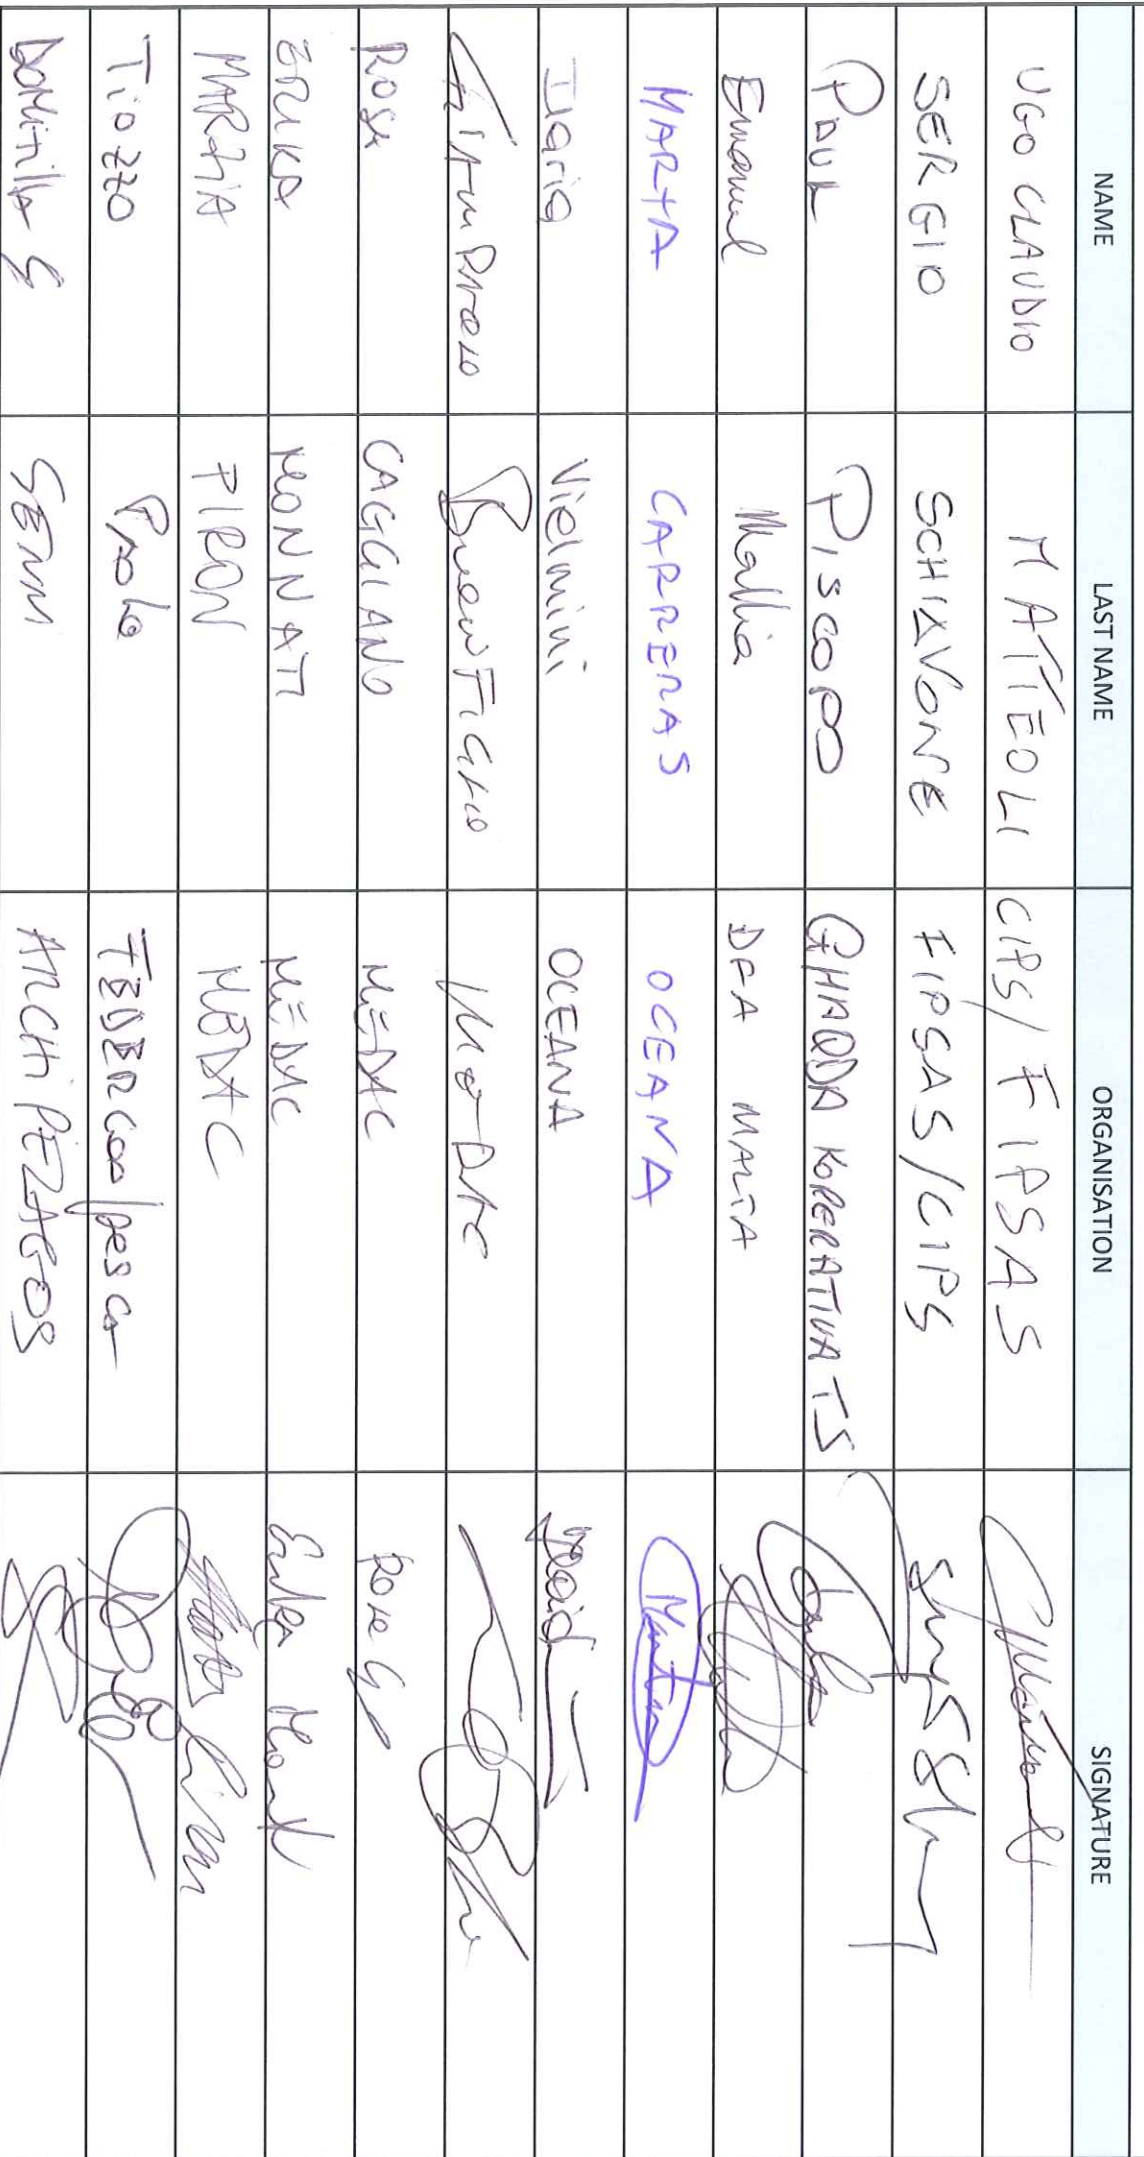 NAME LAST NAME ORGANISATION SIGNATURE
UGO CLAUDIO MATTEOLI CIPS/FIPSAS
SERGIO SCHIAVONE FIPSAS/CIPS
PAUL PISCOPO GHAQDA KOPERATTIVA TS
Emanuel Mallia DFA MALTA
MARTA CARRERAS OCEANA Marta
Ilaria Vielmini OCEANA
GIAMPAOLO BUONFIGLIO MEDAC
ROSA CAGGIANO MEDAC Rosa
ERIKA MONNATI MEDAC Erika Monnati
MARZIA PIRON MEDAC
Tiozzo Paolo FEDERCOOPESCA
DOMITILLA SENNI ARCHIPELAGOS